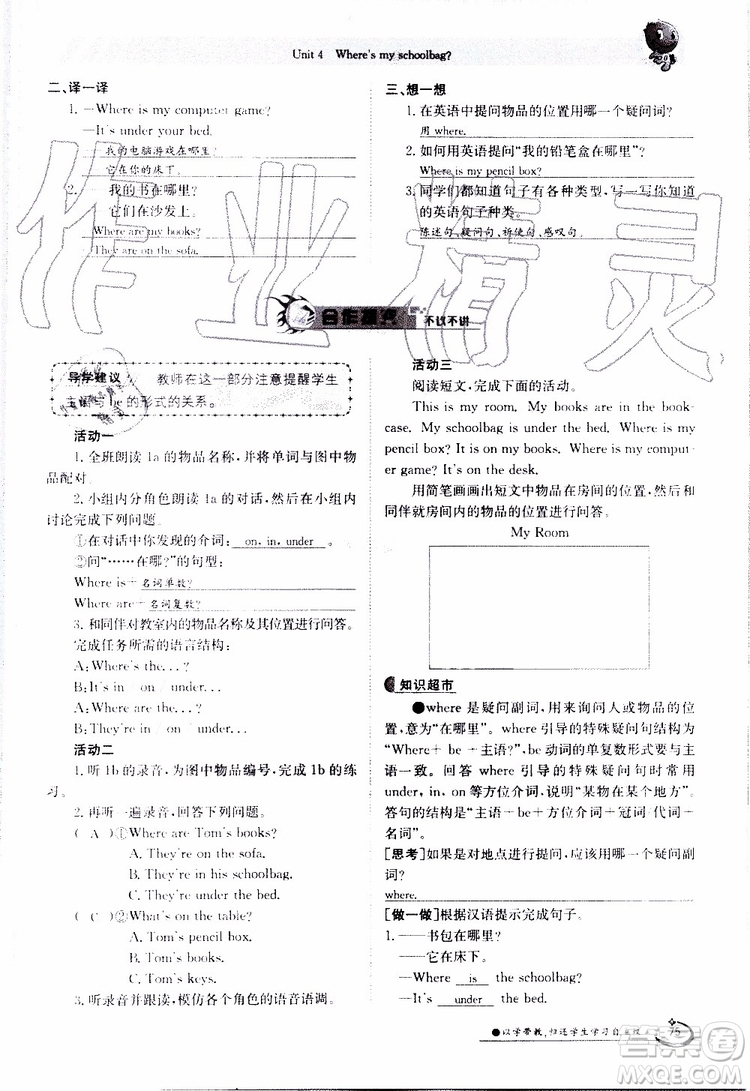 Unit 4 Where's my schoolbag?
二、译一译
1. —Where is my computer game?
—It's under your bed.
我的电脑游戏在哪里?
它在你的床下。
2. 我的书在哪里?
它们在沙发上。
Where are my books?
They are on the sofa.
三、想一想
1. 在英语中提问物品的位置用哪一个疑问词?
用 where.
2. 如何用英语提问“我的铅笔盒在哪里”?
Where is my pencil box?
3. 同学们都知道句子有各种类型,写一写你知道
的英语句子种类。
陈述句、疑问句、祈使句、感叹句
合作探究 不议不讲
导学建议 教师在这一部分注意提醒学生
主语与 be 的形式的关系。
活动一
1. 全班朗读 1a 的物品名称,并将单词与图中物
品配对。
2. 小组内分角色朗读 1a 的对话,然后在小组内
讨论完成下列问题。
①在对话中你发现的介词: on, in, under
②问“……在哪?”的句型:
Where is+ 名词单数?
Where are+ 名词复数?
3. 和同伴对教室内的物品名称及其位置进行问答。
完成任务所需的语言结构:
A: Where's the...?
B: It's in /on/under...
A: Where are the...?
B: They're in/on/under...
活动二
1. 听 1b 的录音,为图中物品编号,完成 1b 的练
习。
2. 再听一遍录音,回答下列问题。
( A )①Where are Tom's books?
A. They're on the sofa.
B. They're in his schoolbag.
C. They're under the bed.
( C )②What's on the table?
A. Tom's pencil box.
B. Tom's schoolbag.
C. Tom's keys.
3. 听录音并跟读,模仿各个角色的语音语调。
活动三
阅读短文,完成下面的活动。
This is my room. My books are in the book-
case. My schoolbag is under the bed. Where is my
pencil box? It is on my bed. Where is my comput-
er game? It's on the desk.
用简笔画画出短文中物品在房间的位置,并
和同伴就房间内的物品的位置进行问答。
My Room
知识超市
●where 是疑问副词,用来询问人或物品的位
置,意为“在哪里”。where 引导的特殊疑问句结构为
“Where+ be +主语?”,be 动词的单复数形式要与主
语一致。回答 where 引导的特殊疑问句时常用
under, in, on 等方位介词,说明“某物在某个地方”。
答句的结构是“主语+be+方位介词+冠词/代词+
名词”。
[思考]如果是对地点进行提问,应该用哪一疑问副
词?
where.
[做一做]根据汉语提示完成句子。
1. ——书包在哪里?
——它在床下。
—Where is the schoolbag?
—It's under the bed.
●以学带教,归还学生学习自主权
75
作业精灵
答案圈
MXQE.COM